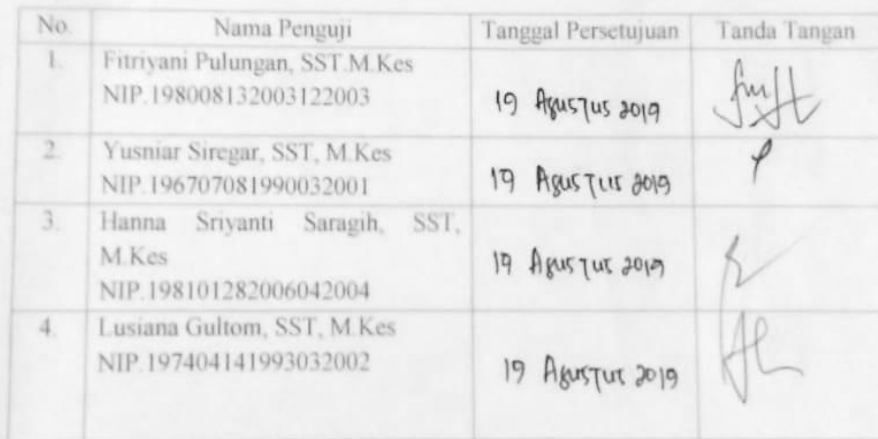 No. Nama Penguji Tanggal Persetujuan Tanda Tangan
1. Fitriyani Pulungan, SST.M.Kes
NIP.198008132003122003 19 Agustus 2019
2. Yusniar Siregar, SST, M.Kes
NIP.196707081990032001 19 Agustus 2019
3. Hanna Sriyanti Saragih, SST,
M.Kes
NIP.198101282006042004 19 Agustus 2019
4. Lusiana Gultom, SST, M.Kes
NIP.197404141993032002 19 Agustus 2019